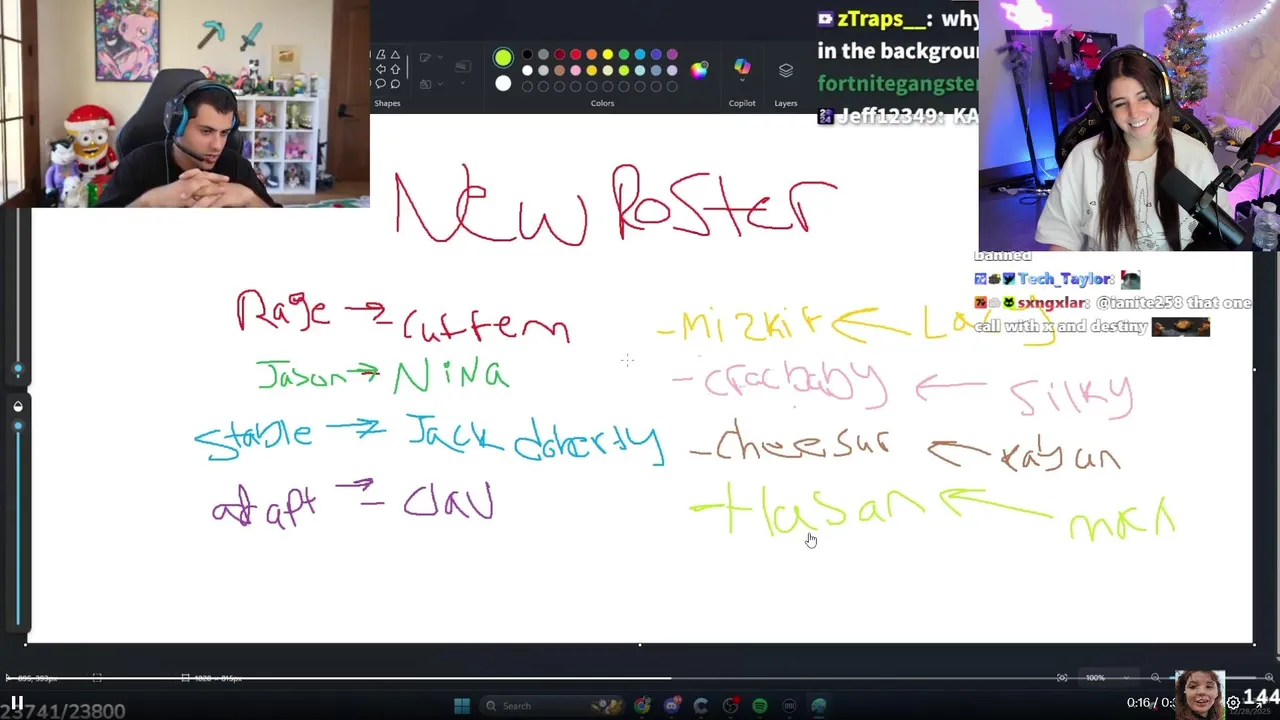 zTraps__: why
in the backgroun
fortnitegangster
Jeff12349: KA
Shapes
Colors
Copilot
Layers
New Roster
banned
Tech_Taylor:
sxngxlar: @ianite258 that one
call with x and destiny
Rage → - Cuffem
- Mizkit ←
Jason → NiNa
- cracbaby ← Silky
Stable → Jack doherty
- cheesur ← Kayun
adapt → - Clav
- Hasan ←
100%
Search
0:16
144
23741/23800